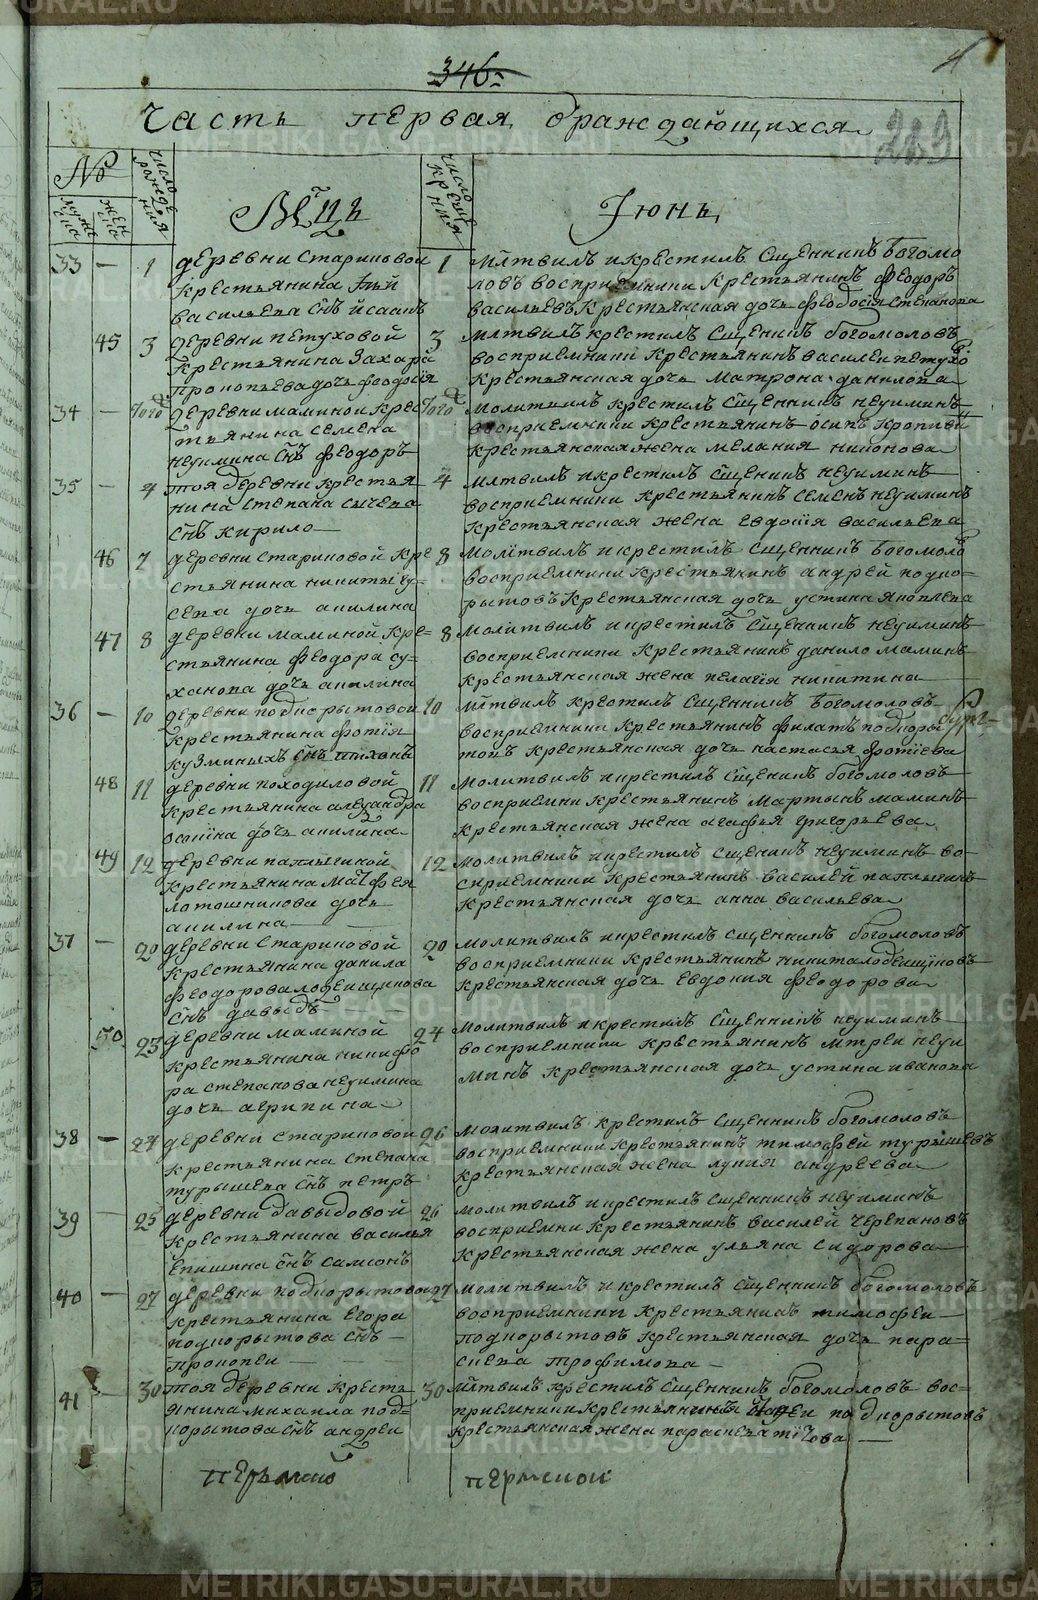 346
часть первая, ораждающихся
229
№
число рождения
мѣць
число крещения
Іюнь,
мужеска
женска
33 — 1 деревни Стариковой
крестьянина
васильева снъ исаакъ
1 млтвилъ и крестилъ Сщенникъ Богомо
ловъ восприемники крестьянинъ феодоръ
васильевъ крестьянская дочь феодосія Степанова
45 3 деревни петуховой
крестьянина Захара
прокопьева дочь феодосія
3 млтвилъ крестилъ Сщенникъ богомоловъ
восприемники крестьянинъ василеи петухо
крестьянская дочь матрона данилова
34 — Того деревни маминой крес
тьянина семена
неуимина снъ феодоръ
Того Молитвилъ крестилъ Сщенникъ неуиминъ
восприемники крестьянинъ осипъ
крестьянская жена мелания никонова
35 — 4 тоя деревни крестья
нина степана сычева
снъ кирило
4 млтвилъ и крестилъ Сщенникъ неуиминъ
восприемники крестьянинъ семенъ неуиминъ
крестьянская жена евдокія васильева
46 7 деревни стариковой кре
стьянина никиты гу-
сева дочь акилина
8 молитвилъ и крестилъ Сщенникъ Богомоло
восприемники крестьянинъ андрей подко-
рытовъ крестьянская дочь устина яковлева
47 8 деревни маминой кре=
стьянина феодора су-
ханова дочь акилина
8 молитвилъ и крестилъ Сщенникъ неуиминъ
восприемники крестьянинъ данило маминъ
крестьянская жена пелагія никитина
36 — 10 деревни подкорытовой
крестьянина фотія
кузминыхъ снъ тихонъ
10 млтвилъ крестилъ Сщенникъ Богомоловъ
восприемники крестьянинъ филатъ подкоры
крестьянская дочь настасья фотіева
48 11 деревни походиловой
крестьянина александра
дочь акилина
11 молитвилъ и крестилъ Сщенникъ богомоловъ
восприемни крестьянинъ мартынъ маминъ
крестьянская жена агафья григорьева
49 12 деревни паклыгиной
крестьянина матфея
дочь
акилина
12 молитвилъ и крестилъ Сщенникъ неуиминъ во-
сприемники крестьянинъ василей
крестьянская дочь анна васильева
37 — 20 деревни стариковой
крестьянина данила
феодорова лобенщикова
снъ давыдъ
20 молитвилъ и крестилъ сщенникъ богомоловъ
восприемники крестьянинъ никита
крестьянская дочь евдокия феодорова
50 23 деревни маминой
крестьянина никифо
ра степанова неуимина
дочь агрипина
24 молитвилъ и крестилъ Сщенникъ неуиминъ
восприемники крестьянинъ мтреи неуи
минъ крестьянская дочь устина иванова
38 — 24 деревни стариковой
крестьянина степана
турышева снъ петръ
26 молитвилъ крестилъ Сщенникъ богомоловъ
восприемники крестьянинъ тимофей турышевъ
крестьянская жена лукия андреева
39 — 25 деревни давыдовой
крестьянина василья
епишина снъ самсонъ
26 молитвилъ и крестилъ сщенникъ неуиминъ
восприемни крестьянинъ василей черепановъ
крестьянская жена ульяна сидорова
40 — 27 деревни подкорытовои
крестьянина Егора
подкорытова снъ
прокопеи
27 молитвилъ и крестилъ Сщенникъ богомоловъ
восприемники крестьянинъ тимофеи
подкорытовъ крестьянская дочь пара=
скева трофимова
41 — 30 тоя деревни кресть
янина михаила под=
корытова снъ андреи
30 млтвилъ крестилъ Сщенникъ богомоловъ вос=
приемники крестьянинъ подкорытовъ
крестьянская жена параскева
пермской